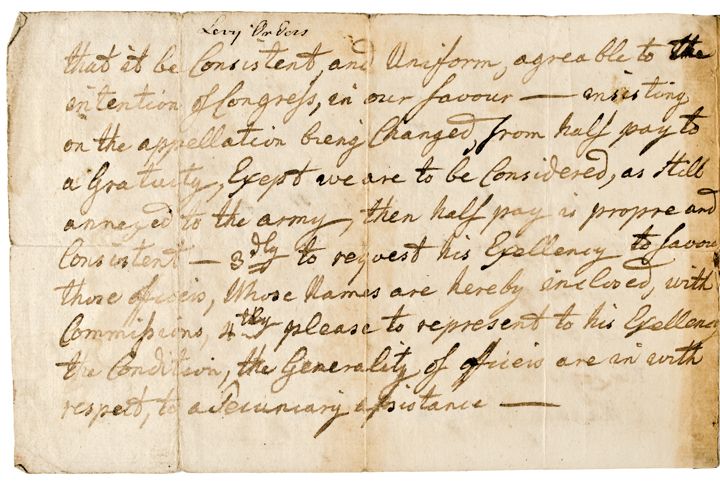 Levy Orders
that it be Consistent, and Uniform, agreable to the
intention of Congress, in our favour — insisting
on the appellation being Changed, from half pay to
a Gratuity, Exept we are to be Considered, as still
annexed to the army, then half pay is propre and
Consistent — 3dly to request his Exellency to favour
those officeis, Whose Names are hereby inclosed, with
Commissions, 4thly please to represent to his Exellency
the Condition, the Generality of officeis are in with
respect, to a Pecuniary assistance —